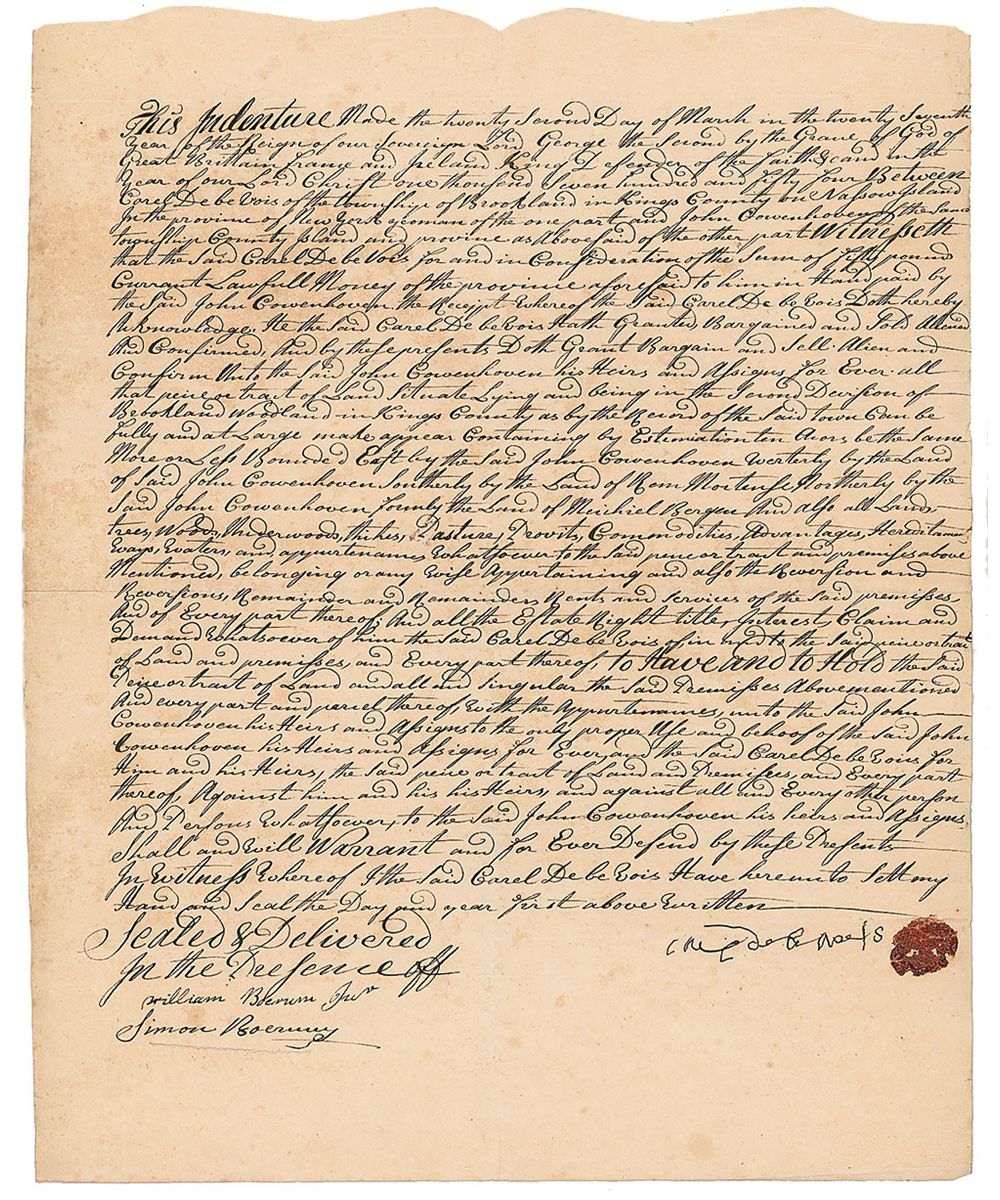 This Indenture Made the twenty Second Day of March in the twenty Seventh
year of the Reign of our Sovereign Lord George the Second by the Grace of God of
Great Brittain France and Ireland King Defender of the Faith &c and in the
year of our Lord Christ one thousand Seven hundred and fifty four Between
Carel De be Vois of the township of Brookland in Kings County on Nassow Island
In the province of New York yeoman of the one part and John Cowenhoven of the Same
township County Island and province as Abovesaid of the other part Witnesseth
that the Said Carel De be Vois for and in Consideration of the Sum of fifty pound
Currant Lawfull Money of the province aforesaid to him in Hand paid by
the Said John Cowenhoven the Receipt whereof the Said Carel De be Vois Doth hereby
Acknowledge, He the Said Carel De be Vois Hath Granted, Bargained and Sold Aliened
And Confirmed, And by these presents Doth Grant Bargain and Sell Alien and
Confirm Unto the Said John Cowenhoven his Heirs and Assigns for Ever all
that peice or tract of Land Situate Lying and being in the Second Devision of
Brookland Woodland in Kings County as by the Record of the Said town Can be
fully and at Large make appear Containing by Estimiation ten Acors be the Same
More or Less Bounded East by the Said John Cowenhoven Westerly by the Land
of Said John Cowenhoven Southerly by the Land of Rem Mortense Northerly by the
Said John Cowenhoven the Land of Meichiel Bergen And also all Lands
trees, Woods, Underwoods, Pasture, Provits, Commodities, Advantages, Hereditame
Ways, Waters, and appurtenances Whatsoever to the Said peice or tract and premises above
Mentioned, belonging or any Wise Appertaining and also the Reversion and
Reversions, Remainder and Remainders Rents and Services of the Said premisses
And of Every part thereof, And all the Estate Right title, Interest, Claim and
Demand Whatsoever of him the Said Carel De be Vois of in and to the Said peice or tract
of Land and premisses, and Every part thereof, to Have and to Hold the Said
Peice or tract of Land and all and Singular the Said Premisses Above mentioned
And every part and parcel thereof, with the Appurtenances, unto the Said John
Cowenhoven his Heirs and Assigns to the only proper Use and behoof of the Said John
Cowenhoven his Heirs and Assigns for Ever and the Said Carel De be Vois for
Him and his Heirs, the Said peice or tract of Land and Premisses, and Every part
thereof, Against him and his his Heirs, and against all and Every other person
And Persons Whatsoever, to the Said John Cowenhoven his heirs and Assigns
Shall and Will Warrant and for Ever Defend by these Presents
In Witness Whereof I the Said Carel De be Vois Have hereunto Sett my
Hand and Seal the Day and year first above Written
Sealed & Delivered
In the Presence off
William Boerum Junr
Simon Boerum